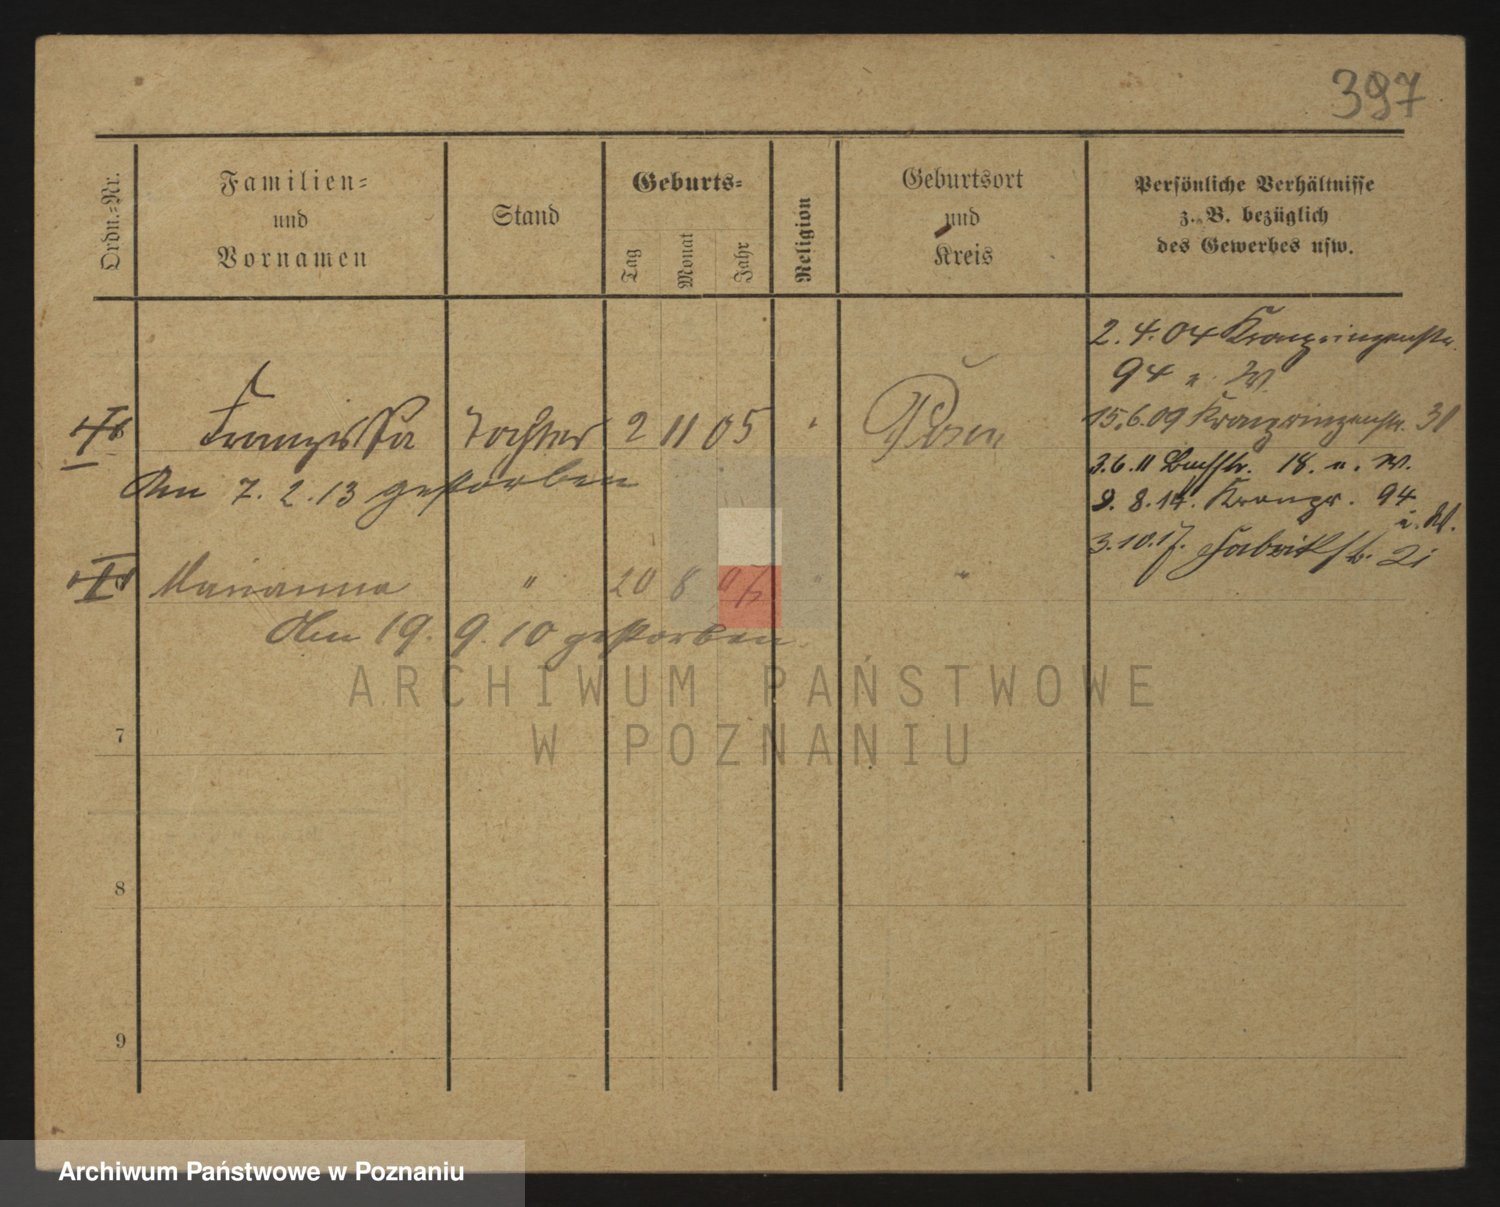 397
Ordn.=Nr.
Familien=
und
Vornamen
Stand
Geburts=
Tag
Monat
Jahr
Religion
Geburtsort
und
Kreis
Persönliche Verhältnisse
z. B. bezüglich
des Gewerbes usw.
2. 4. 04 Kronprinzenstr.
94 u. W.
Franziska Tochter 2 11 05 " Posen
15.6.09 Kronprinzenstr. 31
Am 7. 2. 13 gestorben
3.6.11 Bachstr. 18. u. W.
9. 8. 14. Kronpr. 94
u. W.
3.10.17. Fabrikstr. 21
Marianna " 20 8 " "
Am 19. 9. 10 gestorben.
ARCHIWUM PAŃSTWOWE
W POZNANIU
7
8
9
Archiwum Państwowe w Poznaniu